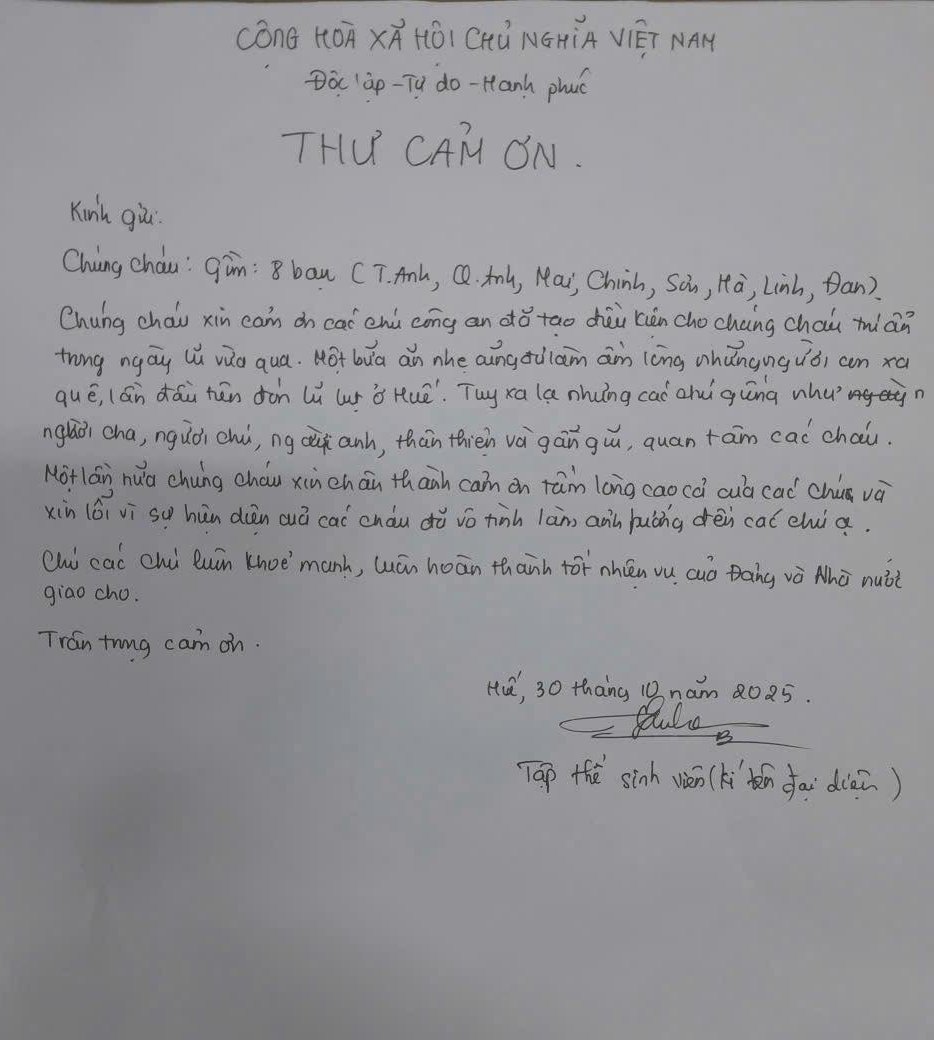 CỘNG HOÀ XÃ HỘI CHỦ NGHĨA VIỆT NAM
Độc lập - Tự do - Hạnh phúc
THƯ CẢM ƠN.
Kính gửi:
Chúng cháu: gồm: 8 bạn (T.Anh, Q.Anh, Mai, Chinh, Sơn, Hà, Linh, Đan).
Chúng cháu xin cảm ơn các chú công an đã tạo điều kiện cho chúng cháu trú ẩn
trong ngày lũ vừa qua. Một bữa ăn nhẹ cũng đủ làm ấm lòng những người con xa
quê, lần đầu tiên đón lũ lụt ở Huế. Tuy xa lạ nhưng các chú cũng như n
người cha, người chú, người anh, thân thiện và gần gũi, quan tâm các cháu.
Một lần nữa chúng cháu xin chân thành cảm ơn tấm lòng cao cả của các chú và
xin lỗi vì sự hiện diện của các cháu đã vô tình làm ảnh hưởng đến các chú ạ.
Chú các chú luôn khoẻ mạnh, luôn hoàn thành tốt nhiện vụ của Đảng và Nhà nước
giao cho.
Trân trọng cảm ơn.
Huế, 30 tháng 10 năm 2025.
Tập thể sinh viên (kí tên đại diện)